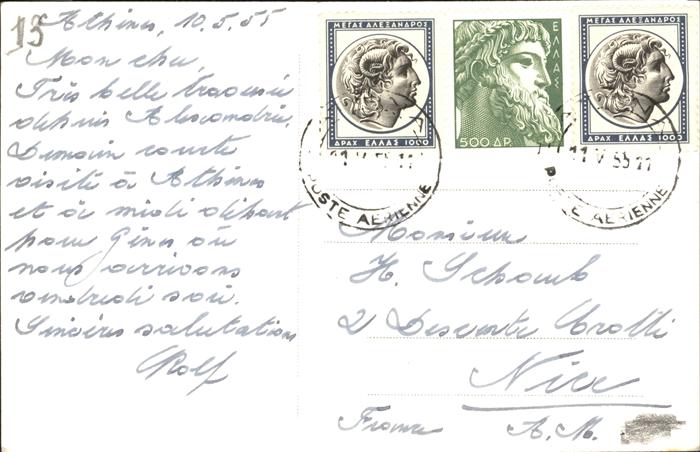 13
Athènes, 10.5.55
Mon cher,
Très belle traversée
depuis Alexandrie.
Demain courte
visite à Athènes
et à midi départ
pour Gênes où
nous arrivons
vendredi soir.
Sincères salutations
Rolf
ΜΕΓΑΣ ΑΛΕΞΑΝΔΡΟΣ
ΔΡΑΧ. ΕΛΛΑΣ 1000
ΕΛΛΑΣ
500 ΔΡ.
ΜΕΓΑΣ ΑΛΕΞΑΝΔΡΟΣ
ΔΡΑΧ. ΕΛΛΑΣ 1000
11 V 55 11
POSTE AERIENNE
11 V 55 11
POSTE AERIENNE
Monsieur
H. Schaub
2 Descente Crotti
Nice
France A.M.